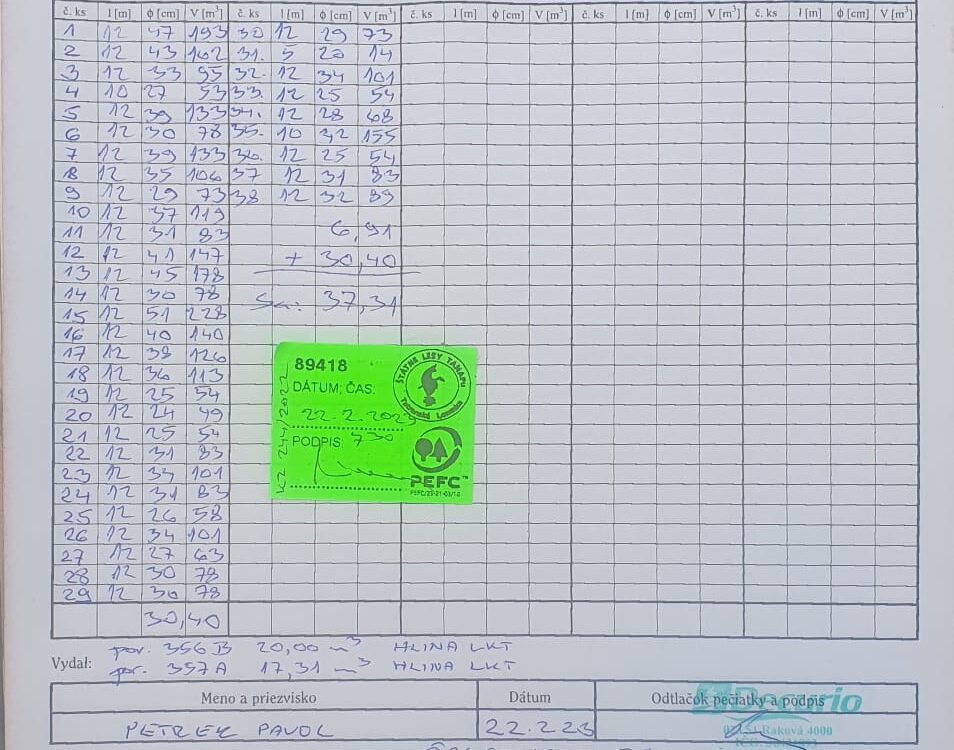 č. ks l [m] ϕ [cm] V [m³] č. ks l [m] ϕ [cm] V [m³] č. ks l [m] ϕ [cm] V [m³] č. ks l [m] ϕ [cm] V [m³] č. ks l [m] ϕ [cm] V [m³]
1 12 47 193 30 12 29 73
2 12 43 162 31. 5 20 14
3 12 33 95 32. 12 34 101
4 10 27 53 33. 12 25 54
5 12 39 133 34. 12 28 68
6 12 30 78 35. 10 155
7 12 39 133 36. 12 25 54
8 12 35 106 37 12 31 83
9 12 29 73 38 12 32 89
10 12 37 119
11 12 31 83 6,91
12 12 41 147 + 30,40
13 12 45 178
14 12 30 78 Sa: 37,31
15 12 51 228
16 12 40 140
17 12 38 126
18 12 36 113
19 12 25 54
20 12 24 49
21 12 25 54
22 12 31 83
23 12 34 101
24 12 31 83
25 12 26 58
26 12 34 101
27 12 27 63
28 12 30 78
29 12 30 78
30,40
89418
DÁTUM, ČAS:
22.2.2023
PODPIS: 730
ŠTÁTNE LESY TANAPU
Tatranská Lomnica
PEFC™
KZ 244/2022
por. 356 B 20,00 m³ HLINA LKT
Vydal: por. 357A 17,31 m³ HLINA LKT
Meno a priezvisko Dátum Odtlačok pečiatky a podpis
PAVOL 22.2.23
Decario
Raková 4000